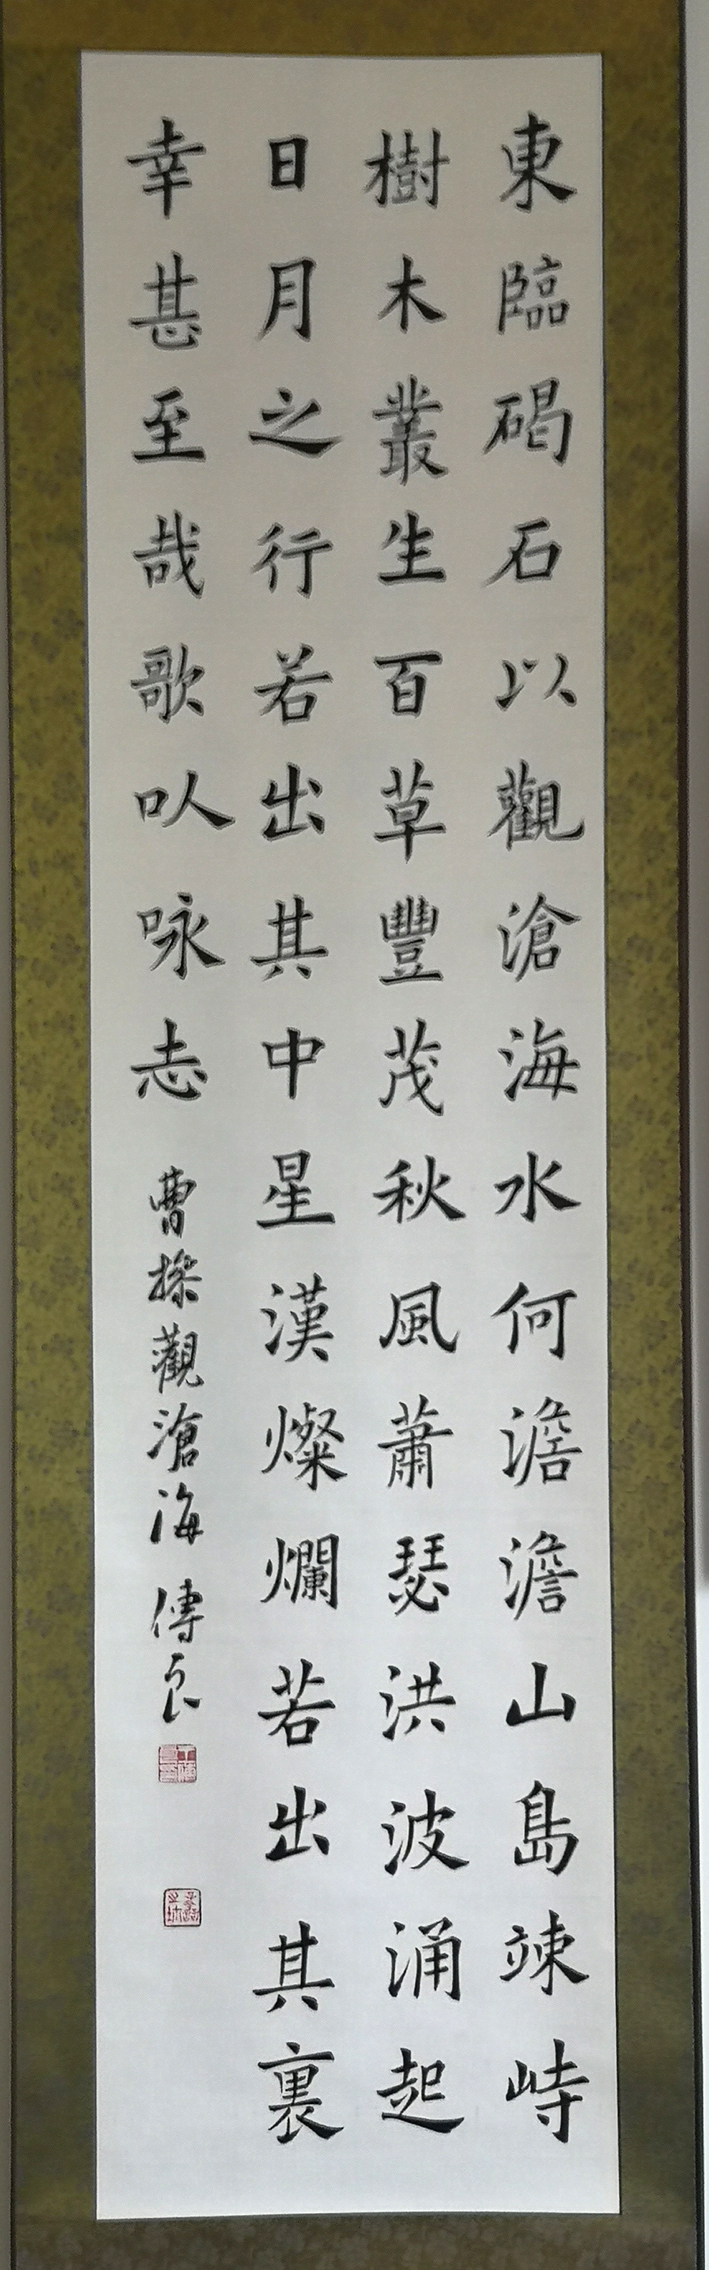 東臨碣石以觀滄海水何澹澹山島竦峙
樹木叢生百草豐茂秋風蕭瑟洪波涌起
日月之行若出其中星漢燦爛若出其裏
幸甚至哉歌以咏志
曹操觀滄海 傳良